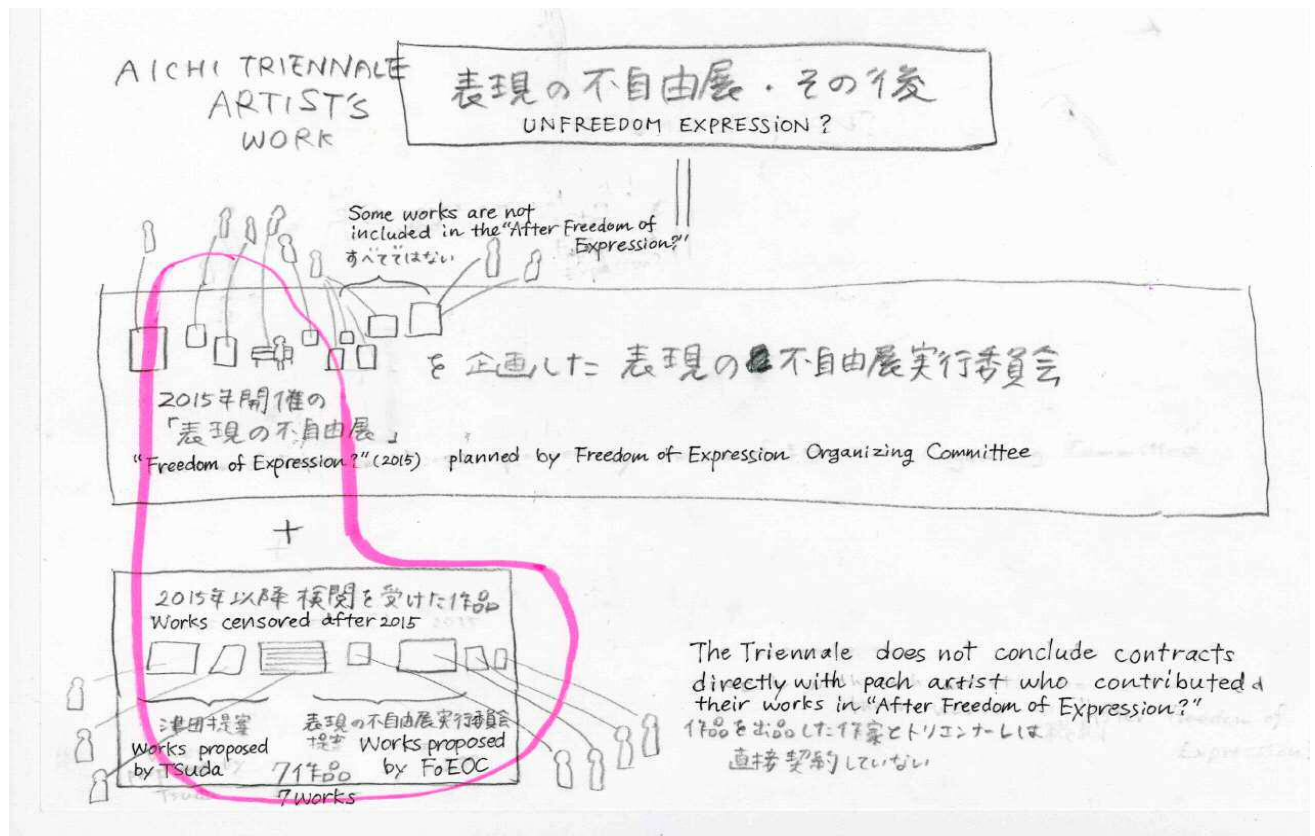 AICHI TRIENNALE
ARTIST'S
WORK
表現の不自由展・その後
UNFREEDOM EXPRESSION?
Some works are not
included in the "After Freedom of
Expression?"
すべてではない
を企画した 表現の不自由展実行委員会
2015年開催の
「表現の不自由展」
"Freedom of Expression?" (2015) planned by Freedom of Expression Organizing Committee
+
2015年以降 検閲を受けた作品
Works censored after 2015
津田提案
Works proposed
by Tsuda
表現の不自由展実行委員会
提案 Works proposed
by FoEOC
7作品
7works
The Triennale does not conclude contracts
directly with each artist who contributed
their works in "After Freedom of Expression?"
作品を出品した作家とトリエンナーレは
直接契約していない